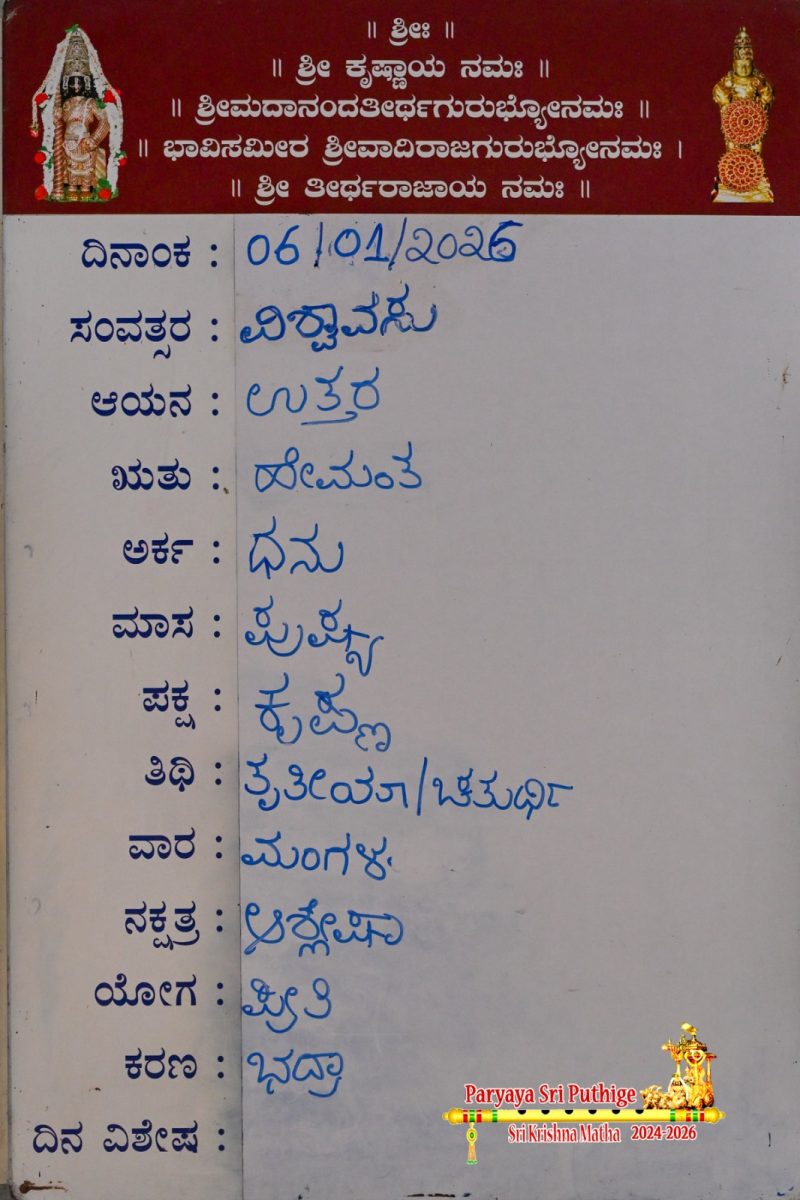 ॥ ಶ್ರೀಃ ॥
॥ ಶ್ರೀ ಕೃಷ್ಣಾಯ ನಮಃ ॥
॥ ಶ್ರೀಮದಾನಂದತೀರ್ಥಗುರುಭ್ಯೋನಮಃ ॥
॥ ಭಾವಿಸಮೀರ ಶ್ರೀವಾದಿರಾಜಗುರುಭ್ಯೋನಮಃ ।
॥ ಶ್ರೀ ತೀರ್ಥರಾಜಾಯ ನಮಃ ॥
ದಿನಾಂಕ : 06/01/2026
ಸಂವತ್ಸರ : ವಿಶ್ವಾವಸು
ಆಯನ : ಉತ್ತರ
ಋತು : ಹೇಮಂತ
ಅರ್ಕ : ಧನು
ಮಾಸ : ಪುಷ್ಯ
ಪಕ್ಷ : ಕೃಷ್ಣ
ತಿಥಿ : ತೃತೀಯಾ/ಚತುರ್ಥಿ
ವಾರ : ಮಂಗಳ
ನಕ್ಷತ್ರ : ಆಶ್ಲೇಷಾ
ಯೋಗ : ಪ್ರೀತಿ
ಕರಣ : ಭದ್ರಾ
ದಿನ ವಿಶೇಷ :
Paryaya Sri Puthige
Sri Krishna Matha 2024-2026